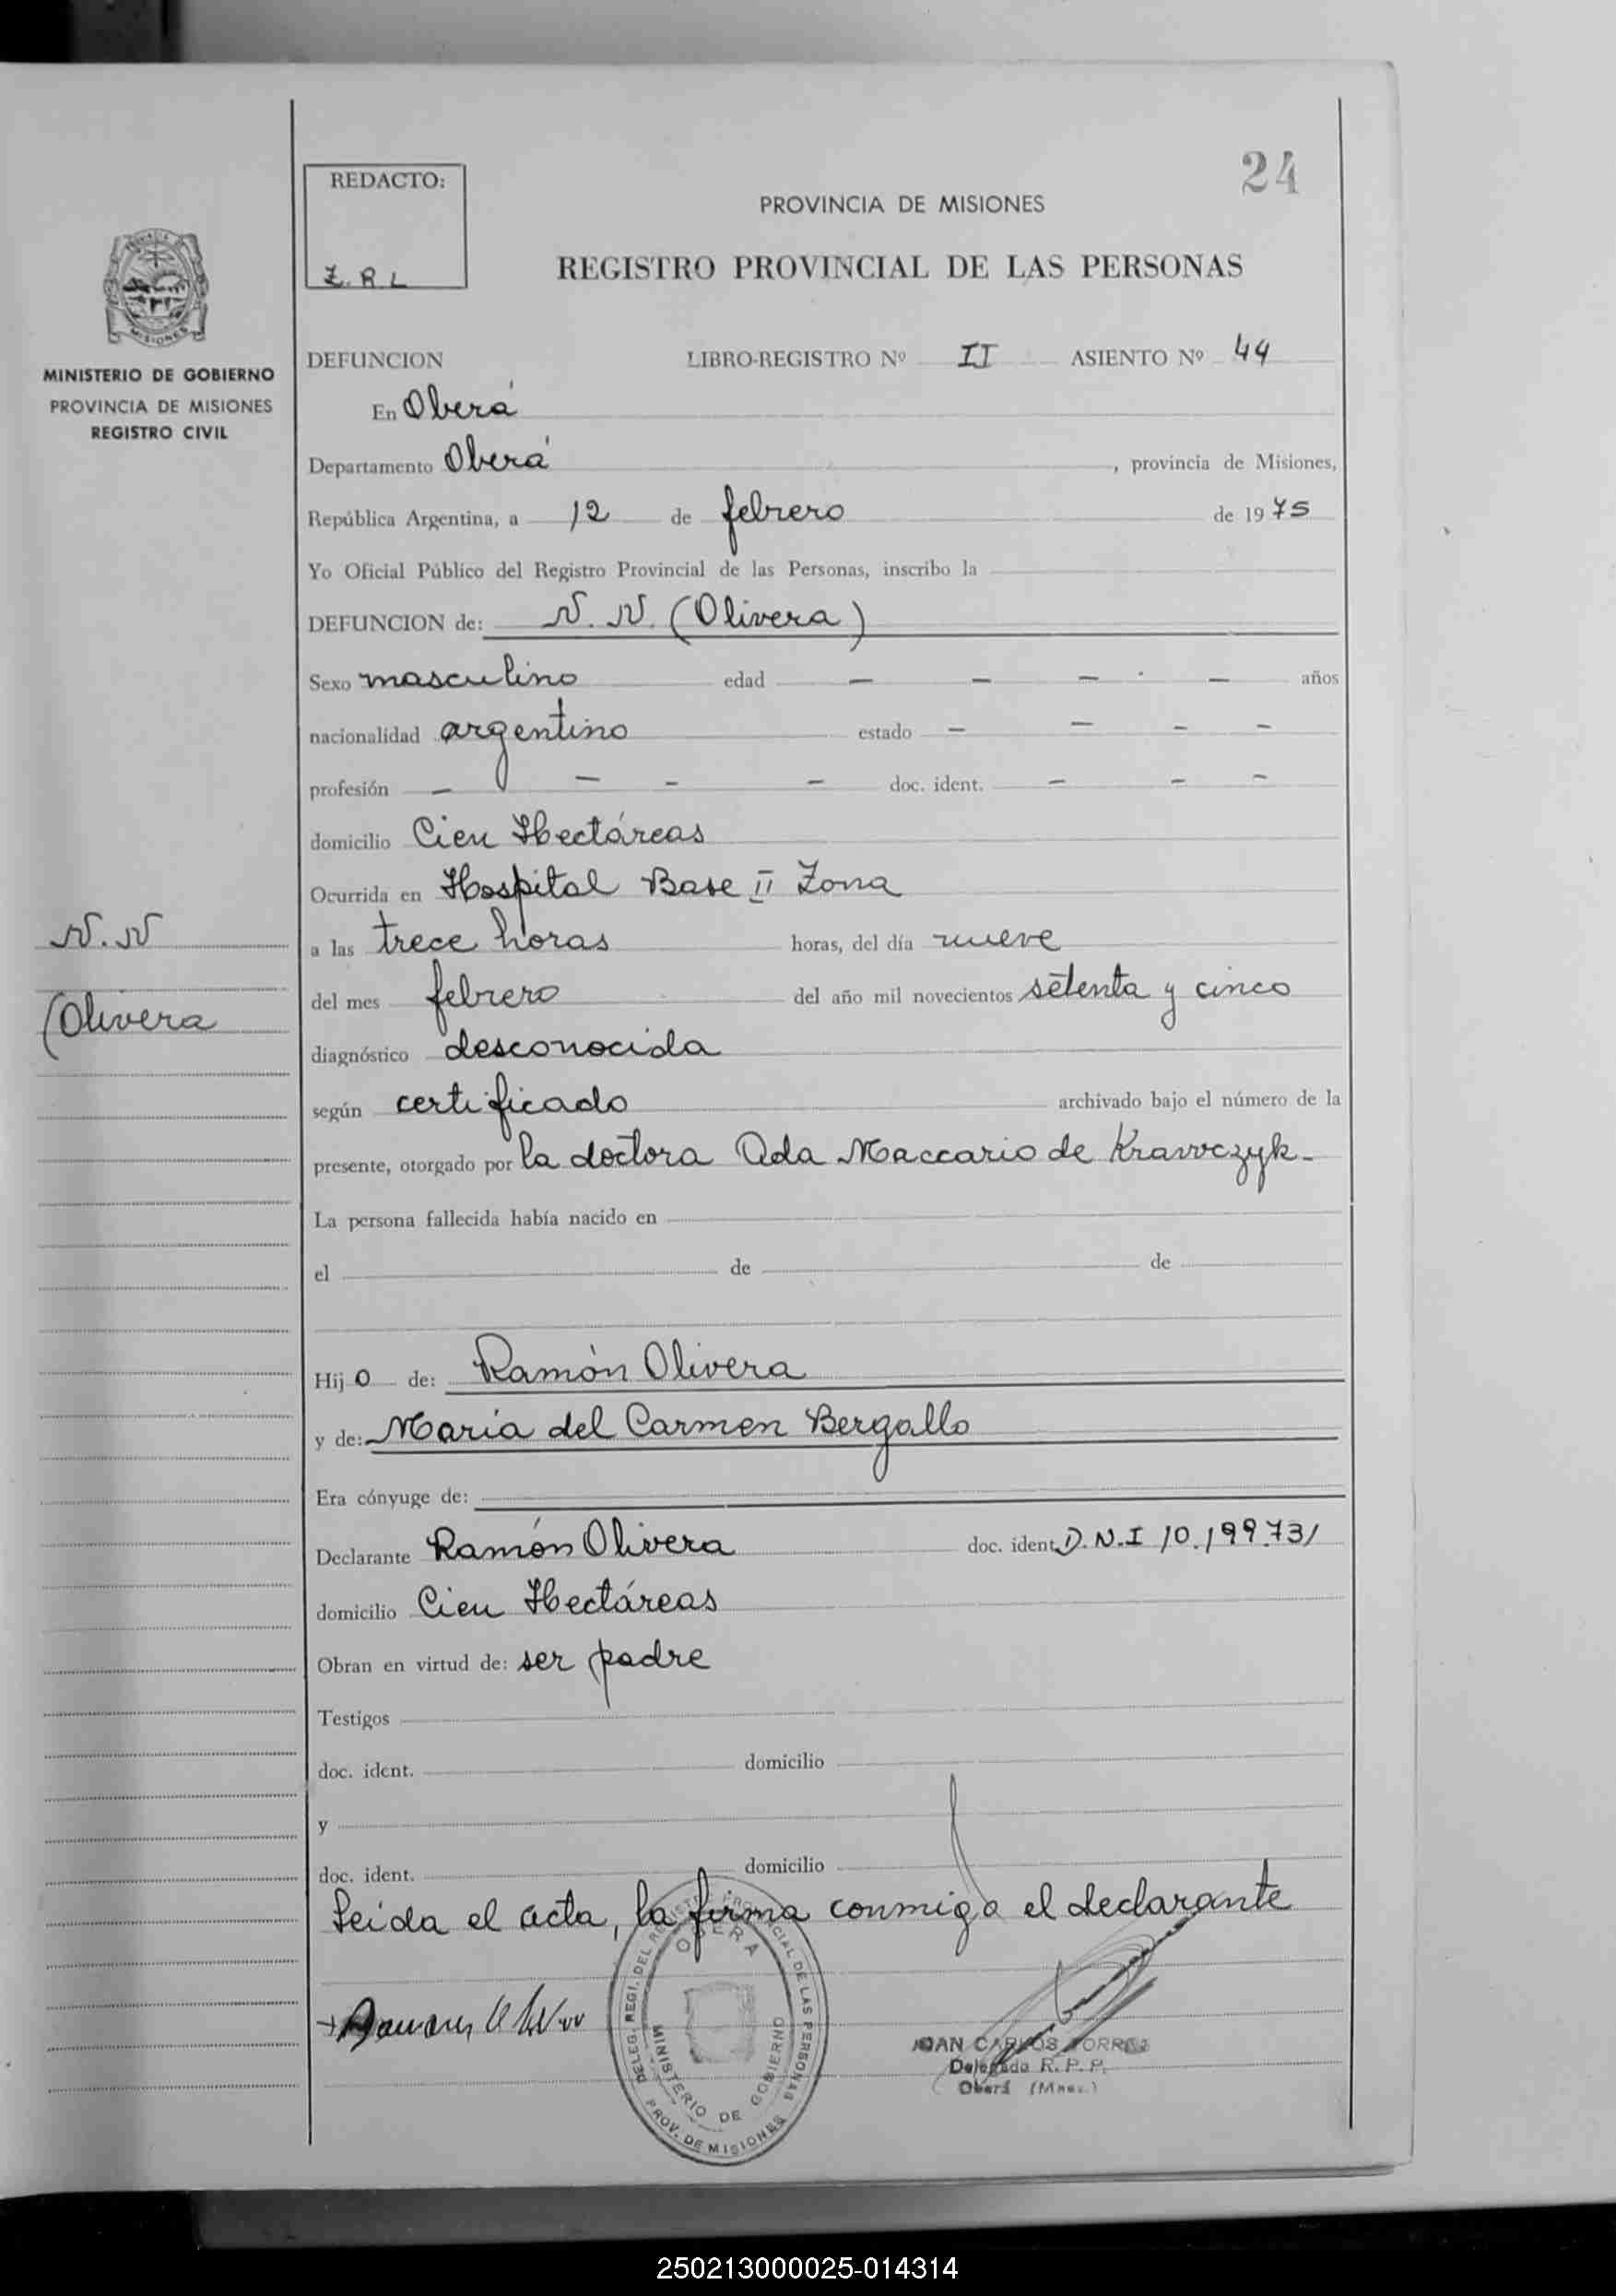 24
REDACTO:
Z. R. L
PROVINCIA DE MISIONES
REGISTRO PROVINCIAL DE LAS PERSONAS
MISIONES
MINISTERIO DE GOBIERNO
PROVINCIA DE MISIONES
REGISTRO CIVIL
DEFUNCION LIBRO-REGISTRO Nº II ASIENTO Nº 44
En Oberá
Departamento Oberá, provincia de Misiones,
República Argentina, a 12 de febrero de 1975
Yo Oficial Público del Registro Provincial de las Personas, inscribo la
DEFUNCION de: N. N. (Olivera)
Sexo masculino edad — — — — años
nacionalidad argentino estado — — — —
profesión — — — — doc. ident. — — —
domicilio Cien Hectáreas
Ocurrida en Hospital Base II Zona
N. N
a las trece horas horas, del día nueve
(Olivera
del mes febrero del año mil novecientos setenta y cinco
diagnóstico desconocida
según certificado archivado bajo el número de la
presente, otorgado por la doctora Ada Maccario de Kravvczyk-
La persona fallecida había nacido en
el de de
Hijo de: Ramón Olivera
y de: María del Carmen Bergallo
Era cónyuge de:
Declarante Ramón Olivera doc. ident. D.N.I 10.199.731
domicilio Cien Hectáreas
Obran en virtud de: ser padre
Testigos
doc. ident. domicilio
y
doc. ident. domicilio
Leida el acta, la firma conmigo el declarante
DELEG. REGI. DEL REGISTRO PROVINCIAL DE LAS PERSONAS
OBERA
MINISTERIO DE GOBIERNO
PROV. DE MISIONES
JUAN CARLOS TORRES
Delegado R. P. P.
Oberá (Mnes.)
250213000025-014314